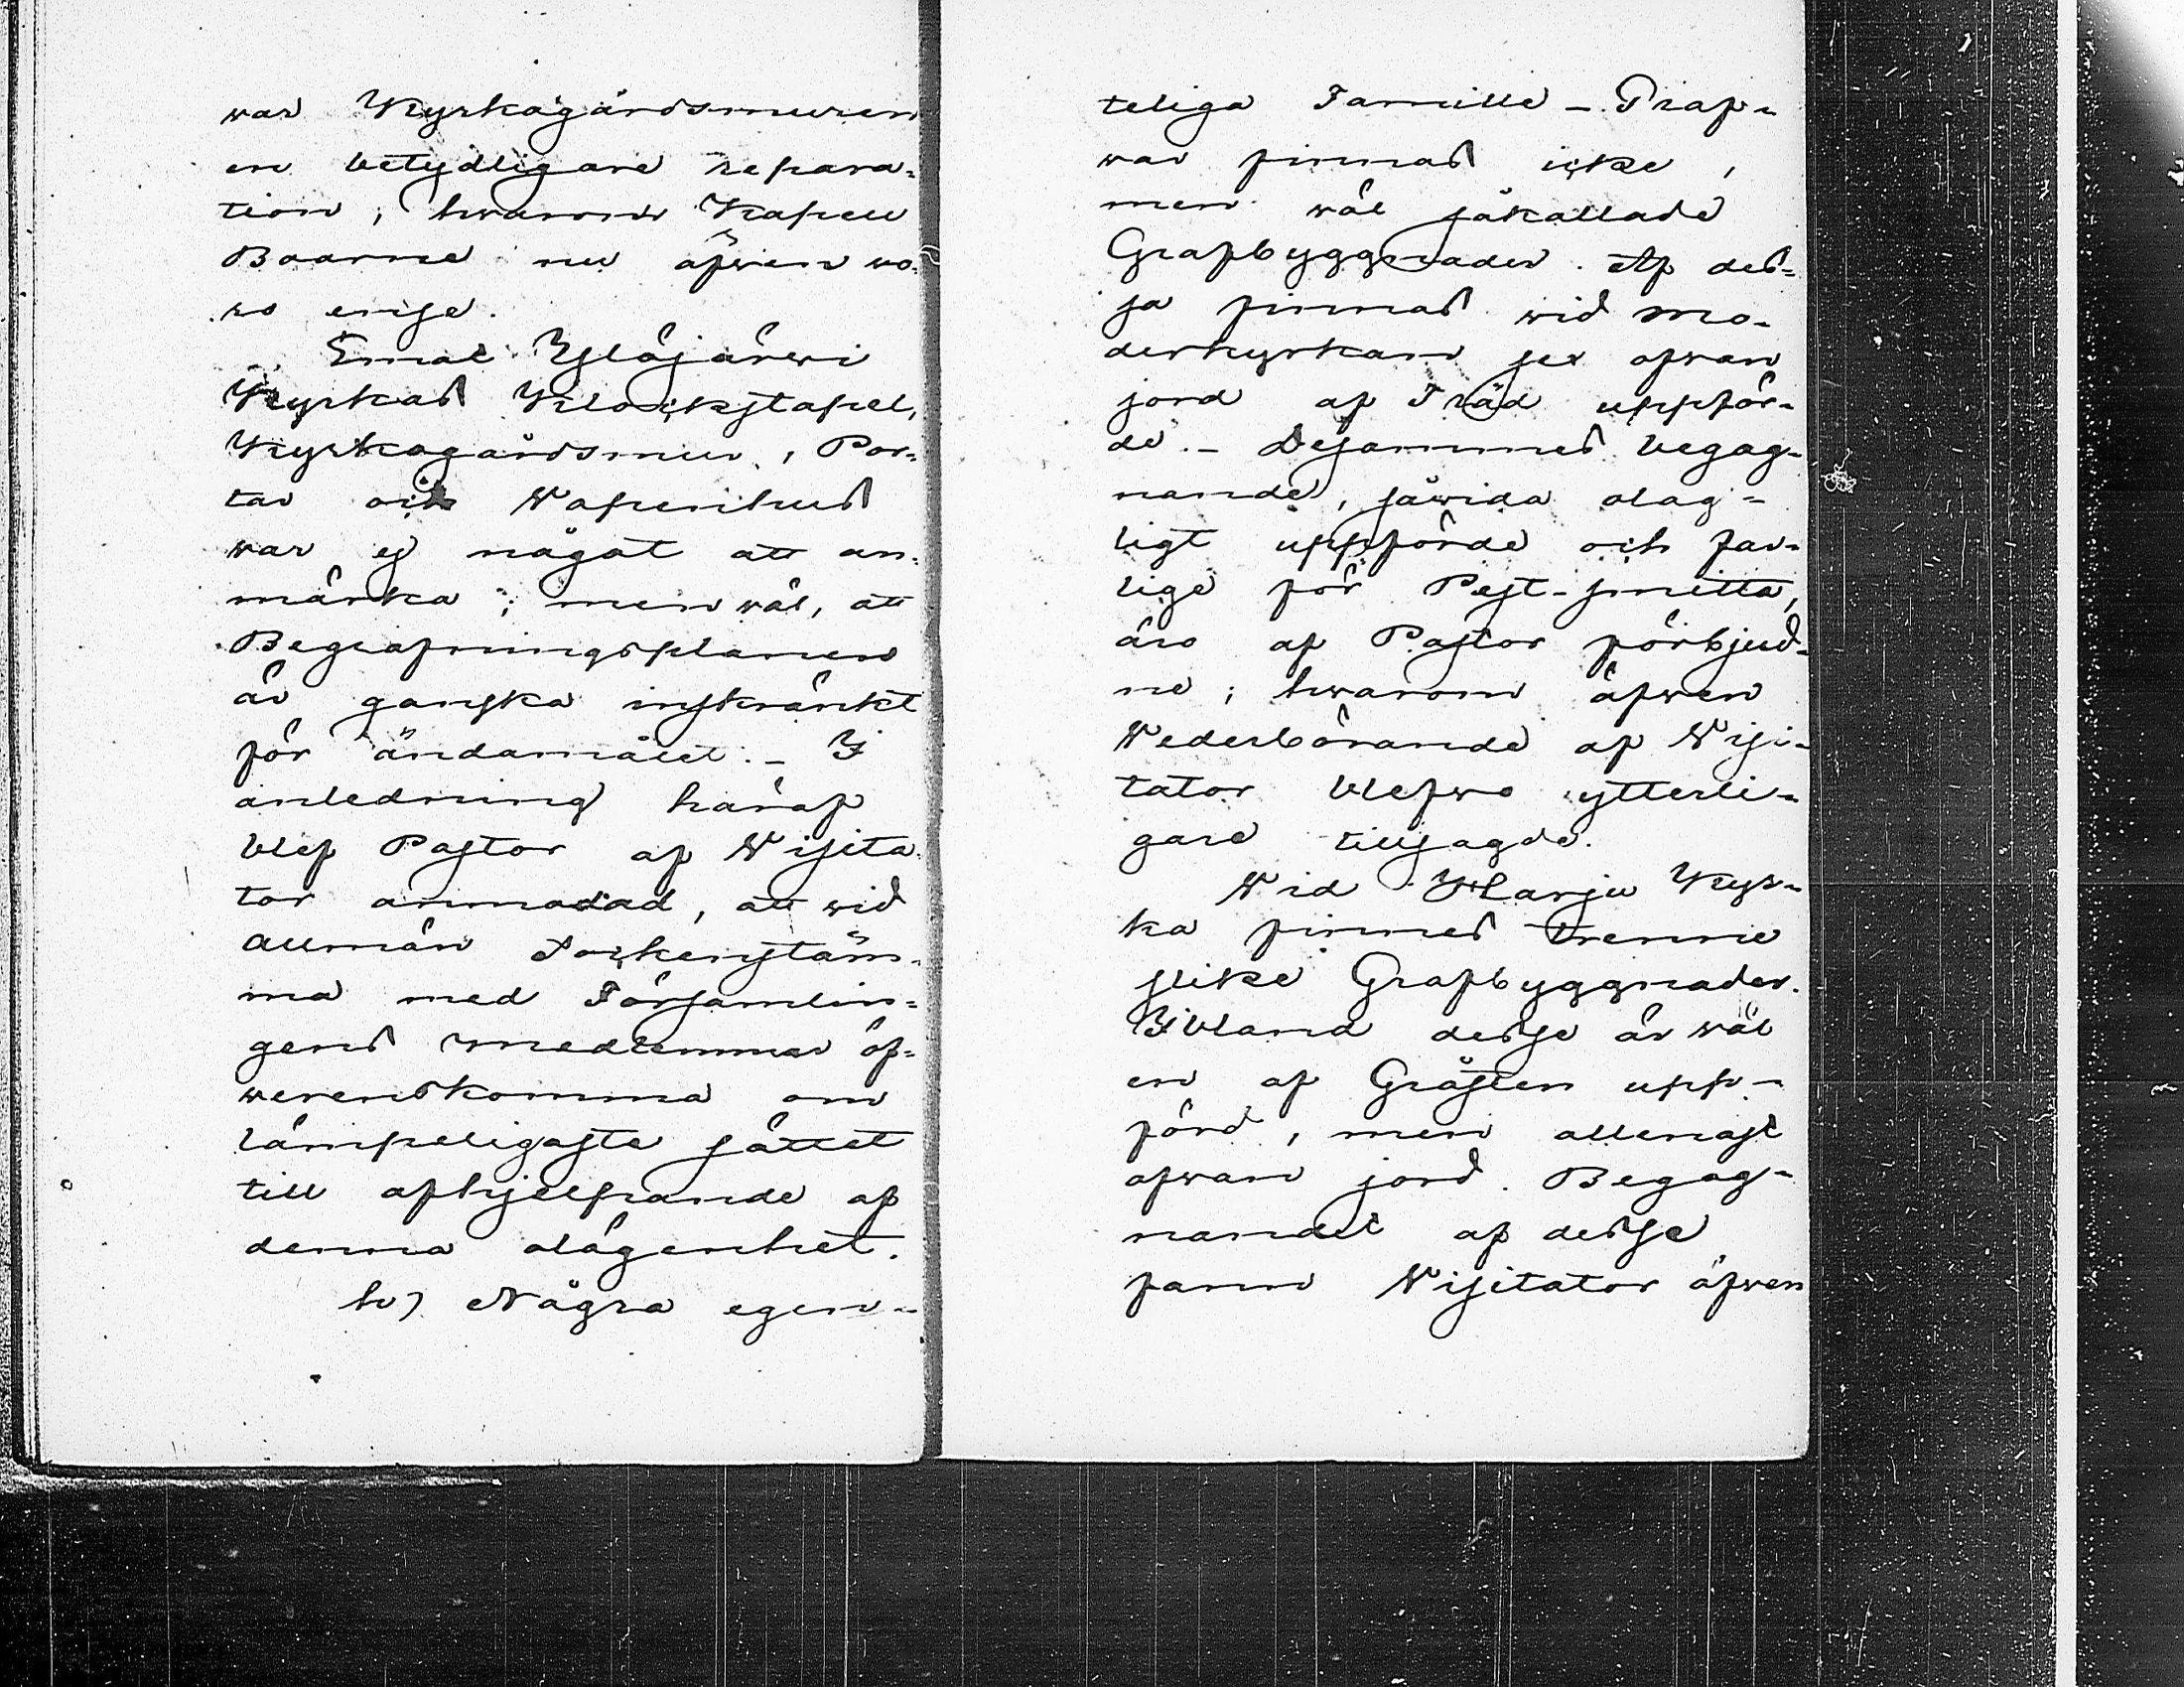 war Kyrkogårdsmuren
en betydligare repara-
tion; hwarom Kapell
Boarne nu äfwen wo-
ro ense.
Emot Ylöjärwi
Kyrkas Klockstapel,
Kyrkogårdsmur, Por-
tar och Wapenhus
war ej något att an-
märka; men wäl, att
Begrafningsplanen
är ganska inskränkt
för ändamålet. - I
anledning häraf
blef Pastor af Wisita-
tor anmodad, att wid
allmän Sockenstäm-
ma med Församlin-
gens medlemmar öf-
werenskomma om
lämpeligaste sättet
till afhjelpande af
denna olägenhet.
h) Några egen-
teliga Famille - Graf-
war finnas icke,
men wäl såkallade
Grafbyggnader. Af des-
sa finnas wid mo-
derkyrkan sex ofwan
jord af Träd uppför-
de. - Desammes begag-
nande, såwida olag-
ligt uppförde och far-
lige för Pest-smitta,
äro af Pastor förbjud-
ne; hwarom äfwen
Wederbörande af Wisi-
tator blefwo ytterli-
gare tillsagde.
Wid Harju Kyr-
ka finnes trenne
slike Grafbyggnader.
Ibland desse är wäl
en af Gråsten upp-
förd, men allenast
ofwan jord. Begag-
nandet af desse
fann Wisitator äfwen